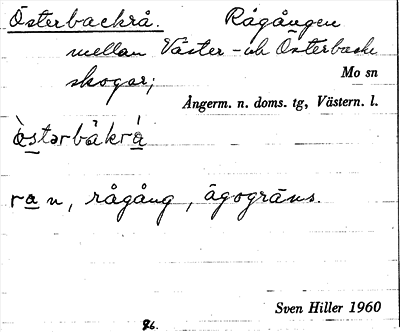 Österbackrå. Rågången
mellan Väster- och Österbacke
skogar;
Mo sn
Ångerm. n. doms. tg, Västern. l.
östərbàkrá
ra n, rågång, ägogräns.
Sven Hiller 1960
86.